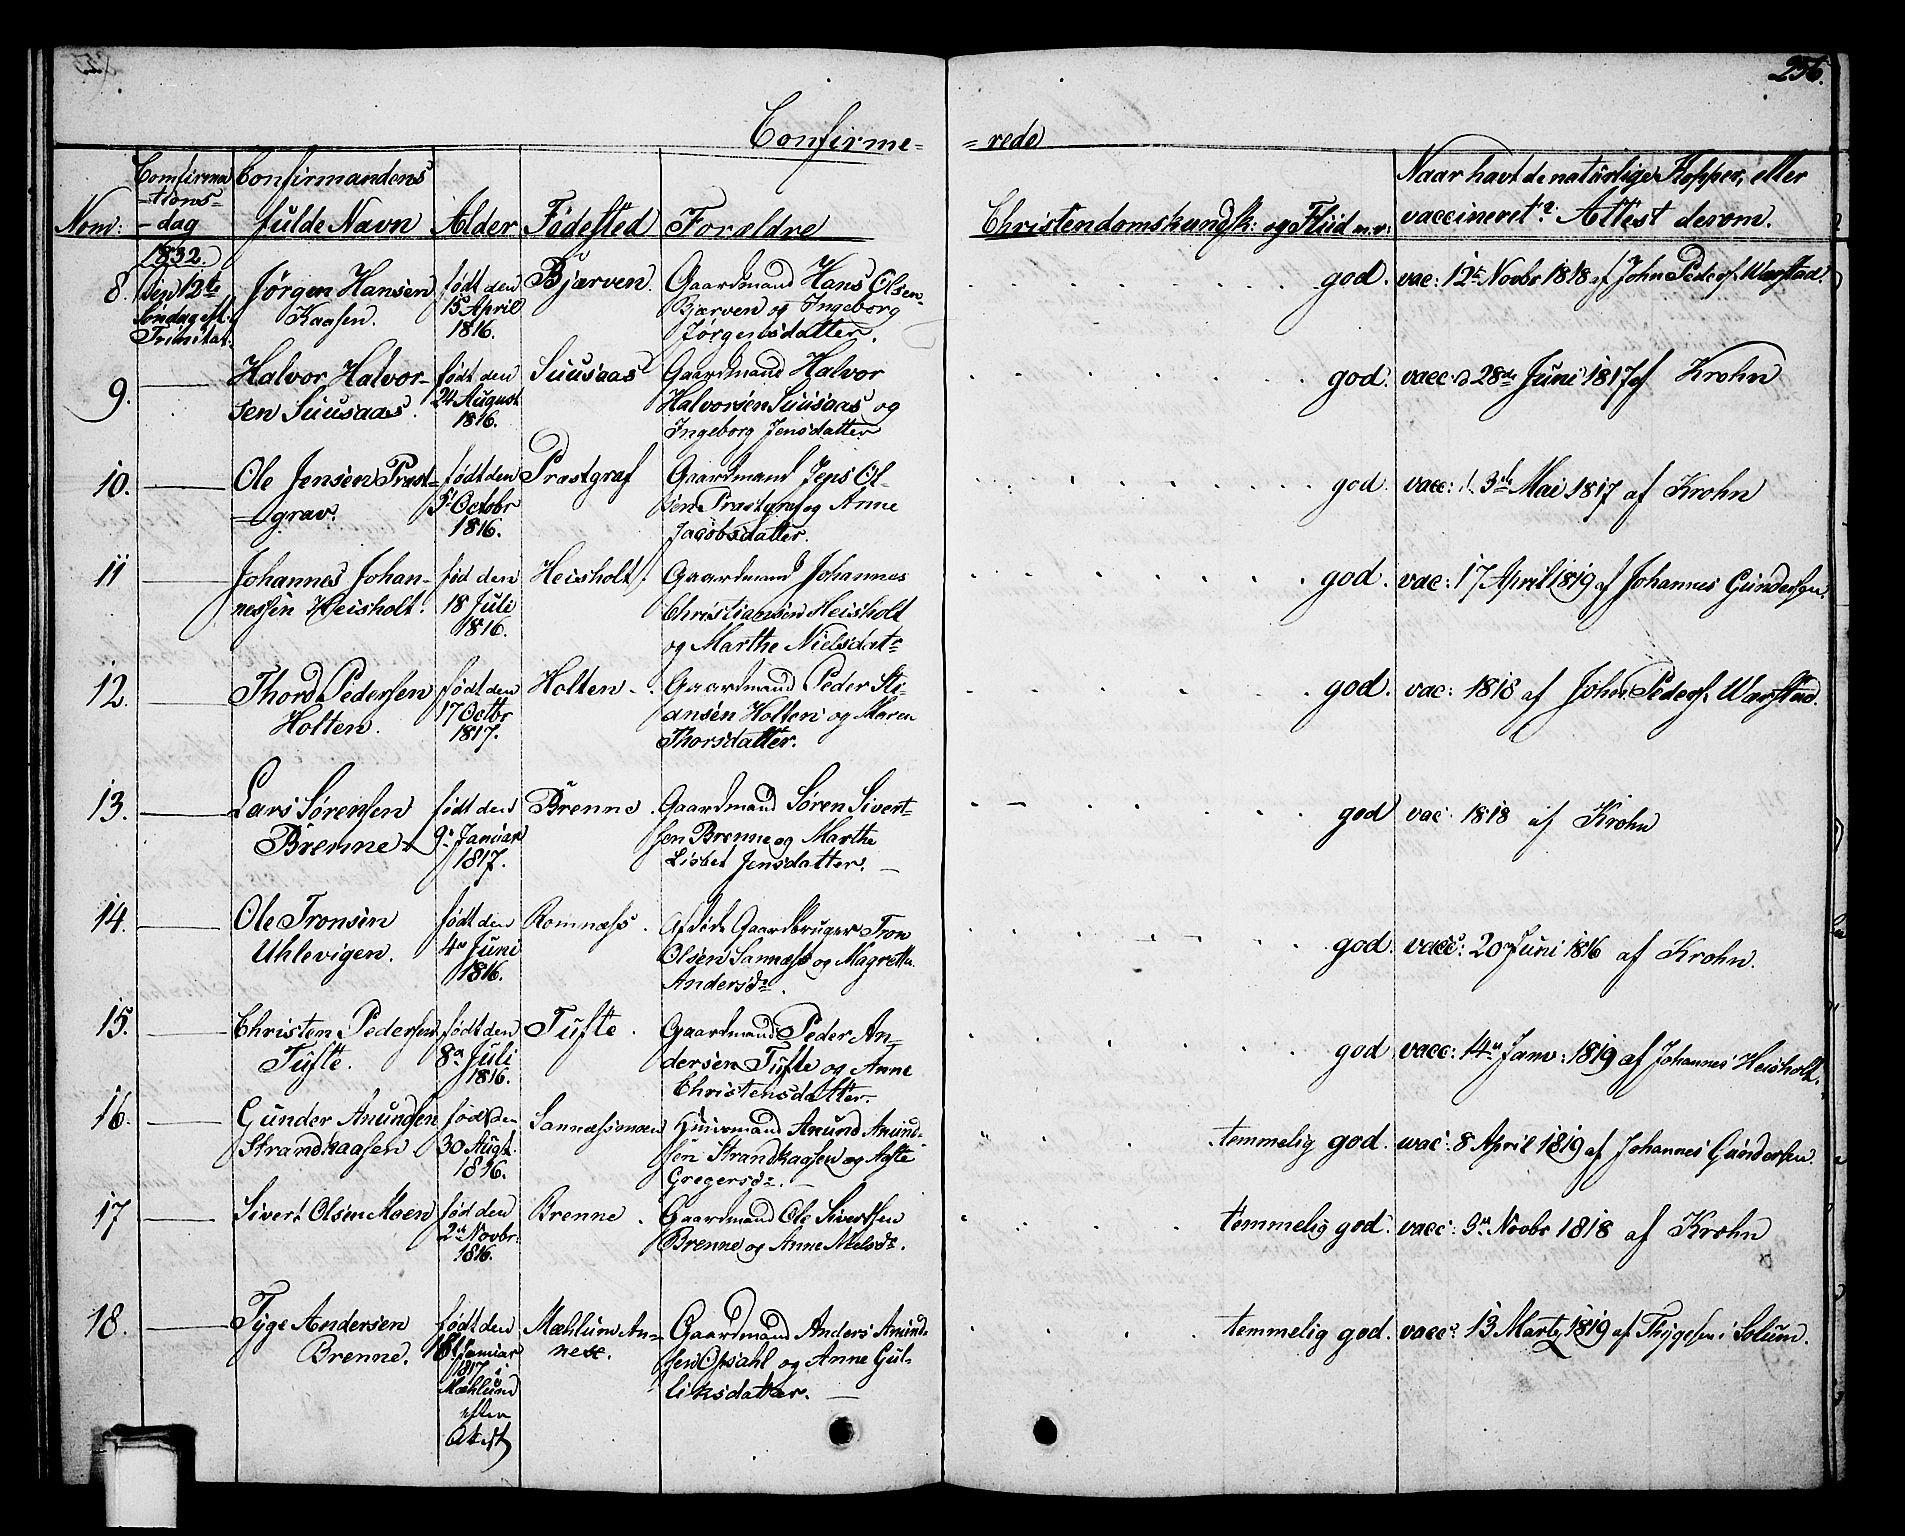 256.
Confirme- -rede
Nom: Confirma-tions-dag Confirmandens fulde Navn Alder Fødested Forældre Christendomskundsk: og Fliid m.v: Naar havt de naturlige Kopper, eller vaccineret? Attest derom.
1832.
8. Den 12te Søndag eft: Trinitat: Jørgen Hansen Kaasen. født den 15 April 1816. Bjærven. Gaardmand Hans Olsen Bjærven og Ingeborg Jørgensdatter. god. vac: 12te Novbr 1818 af John Peders. Warstad.
9. Halvor Halvor-sen Suusaas. født den 24 August 1816. Suusaas Gaardmand Halvor Halvorsen Suusaas og Ingeborg Jensdatter god. vacc: d 28de Juni 1817 af Krohn
10. Ole Jensen Præst-grav. født den 5t Octobr 1816. Præstgraf Gaardmand Jens Ol-sen Præstgraf og Anne Jacobsdatter. god. vacc: d. 3de Mai 1817 af Krohn
11 Johannes Johan-nessen Heisholt. fød den 18 Juli 1816. Heisholt. Gaardmand Johannes Christiansen Heisholt og Marthe Nielsdatr god. vac: 17 April 1819 af Johannes Gundersen.
12. Thord Pedersen Holten. født den 17 Octbr 1817. Holten. Gaardmand Peder Sti-ansen Holten og Maren Thorsdatter. god. vac: 1818 af John Peders. Warstad.
13. Lars Sørensen Brenne født den 9. Januar 1817. Brenne. Gaardmand Søren Sivert-sen Brenne og Marthe Lisbet Jensdatter. god vac: 1818 af Krohn
14. Ole Tronsen Uhlevigen. født den 4de Juni 1816. Romnæss. Afdøde Gaardbruger Tron Olsen Sannæss og Magrethe Andersdr. god. vacc: 20 Juni 1816 af Krohn.
15. Christen Pedersen Tufte. født den 8de Juli 1816. Tufte. Gaardmand Peder An-dersen Tufte og Anne Christensdatter. god. vacc: 14de Janv: 1819 af Johannes Heisholt.
16. Gunder Anundsen Strandkaasen født den 30 Augt. 1816. Sannæssmoen Huusmand Anund Anund-sen Strandkaasen og Aaste Gregersdr. temmelig god. vac: 8 April 1819 af Johannes Gundersen.
17 Sivert Olsen Moen fød den 2den Novbr: 1816. Brenne. Gaardmand Ole Sivertsen Brenne og Anne Nielsdr. temmelig god. vacc: 3de Novbr 1818 af Krohn
18. Tyge Andersen Brenne. født den 18 Januar 1817 i Mæhlum efter Attest Mæhlum An-nex. Gaardmand Anders Amund-sen Opsahl og Anne Gul-liksdatter. temmelig god. vacc: 13 Marty 1819 af Thygesen i Solum.